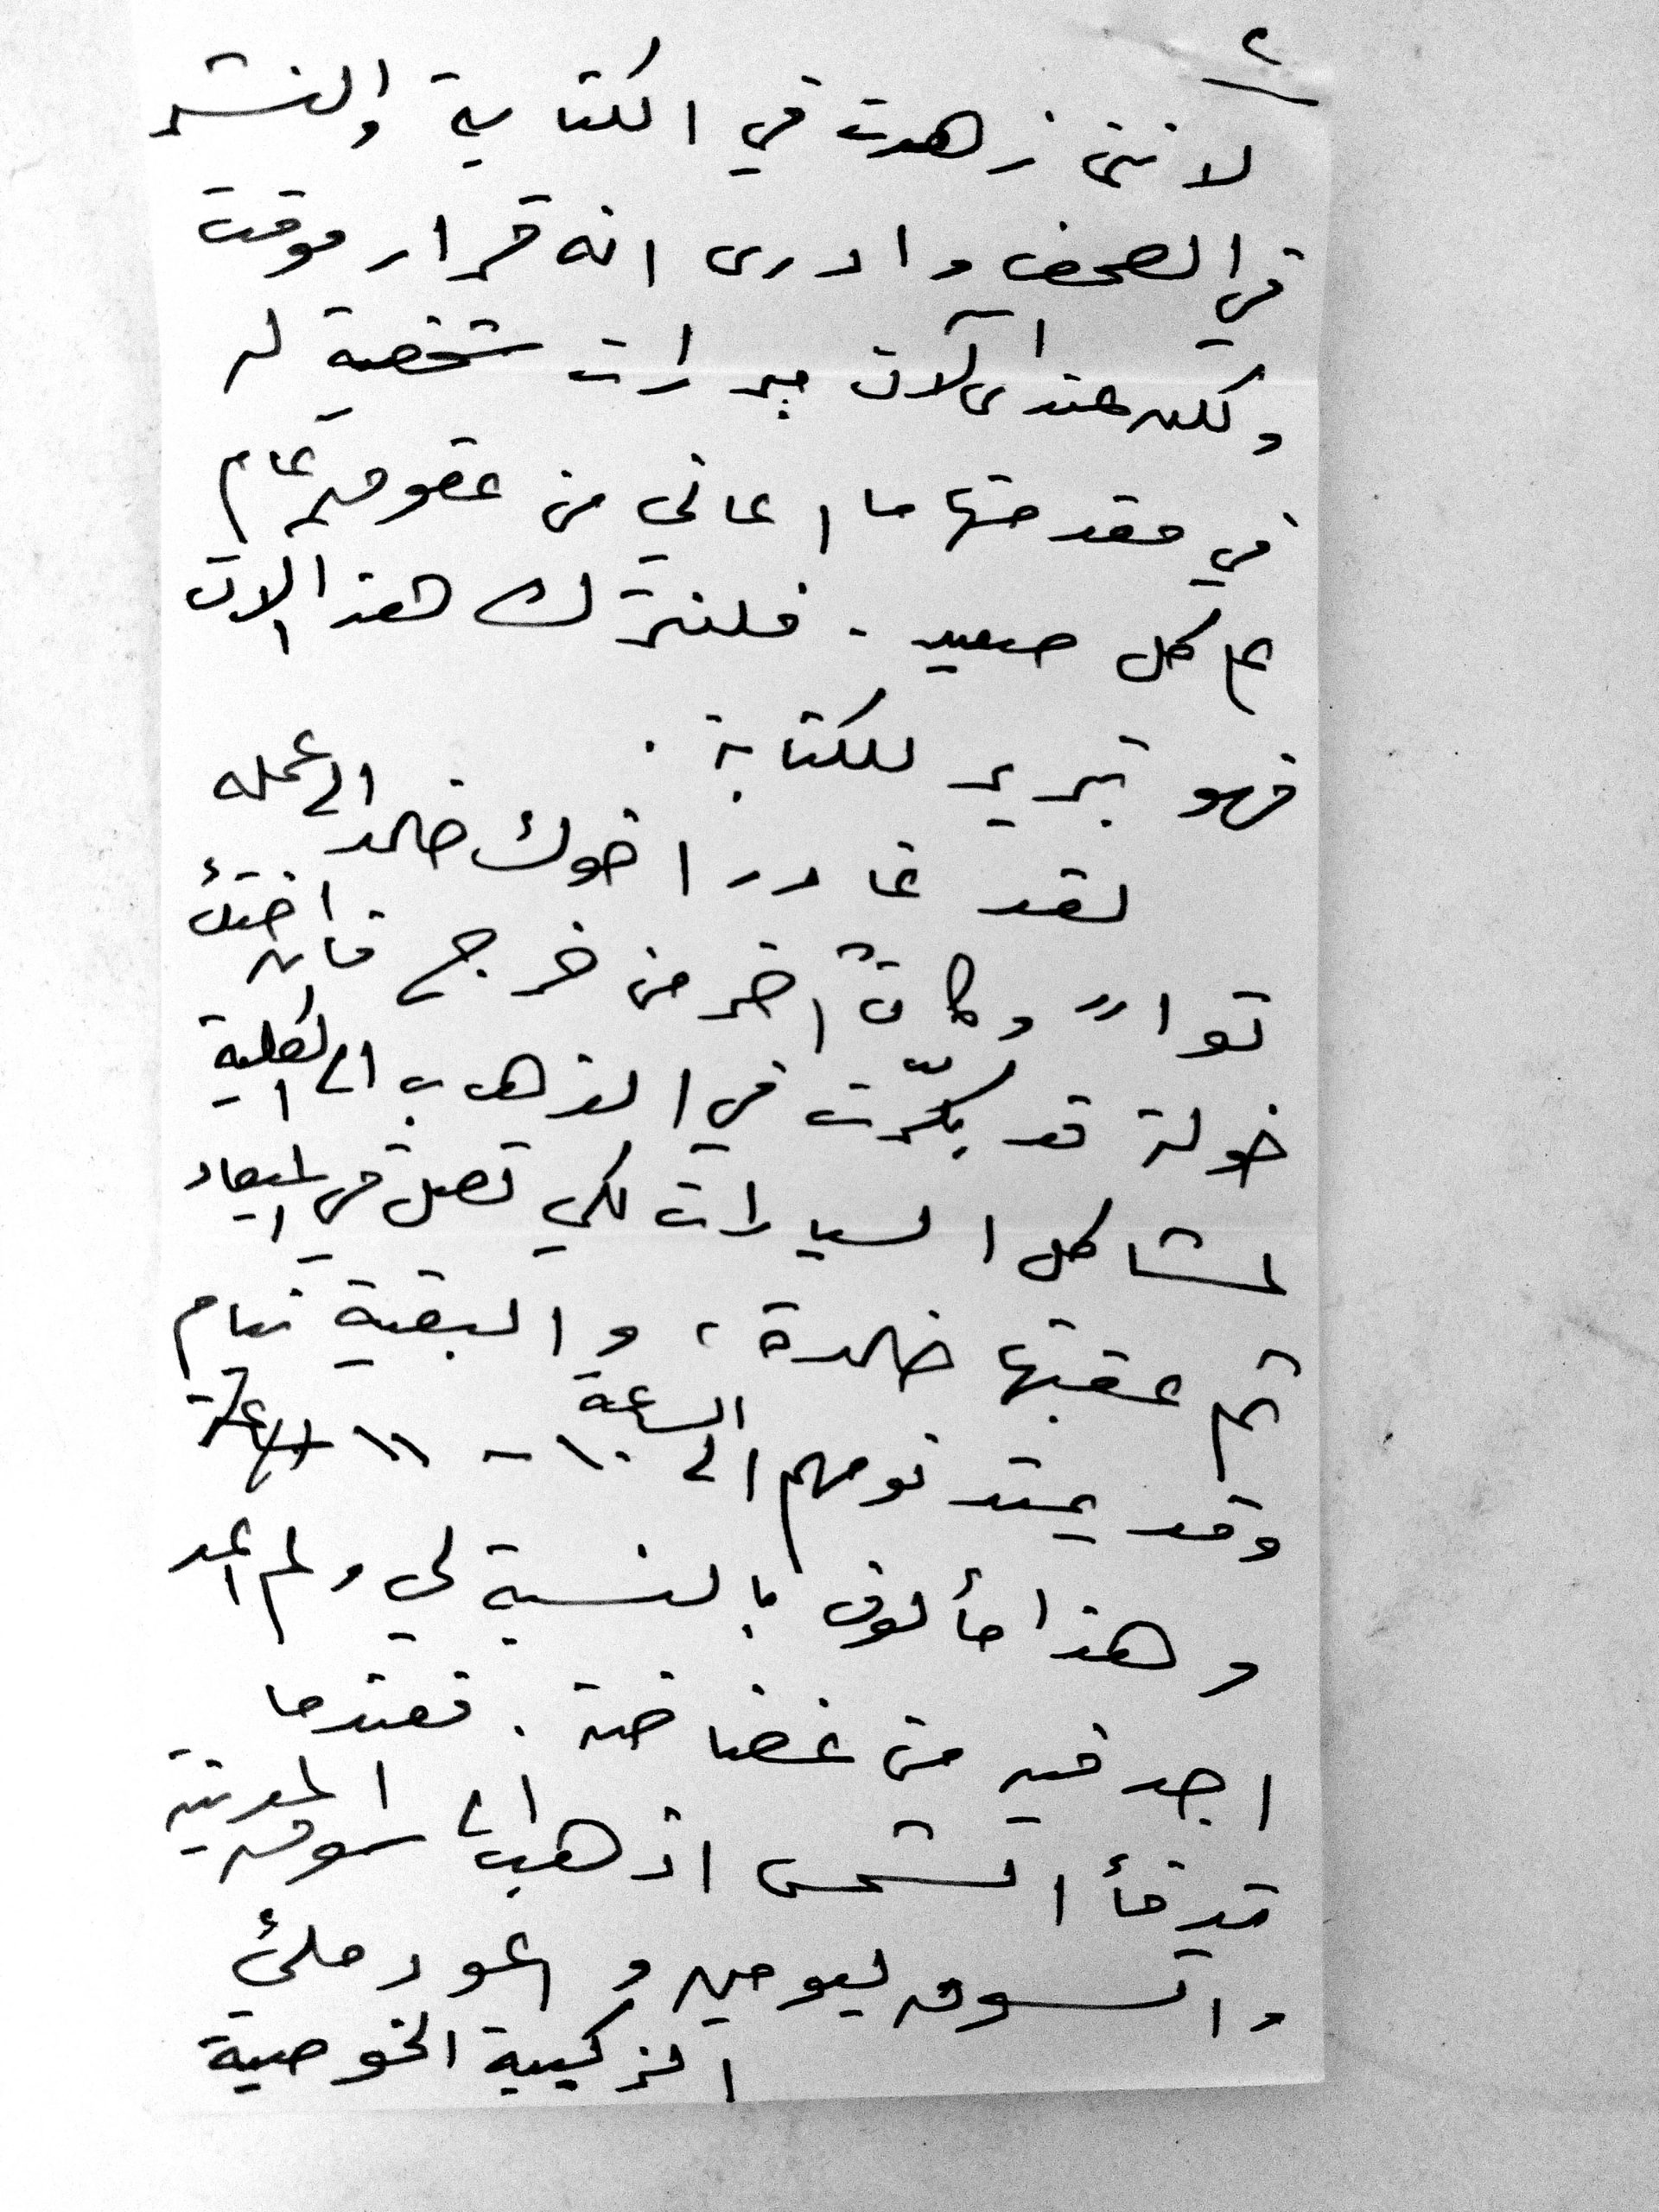 ٢
لانني زهدت في الكتابة والنشر
في الصحف وادرى انه قرار موقت
ولكن عندى الآن مبررات شخصية له
في مقدمتها ما اعاني من عقوق عام
على كل صعيد . فلنترك هذا الان
فهو تبرير للكتابة .
لقد غادر اخوك خالد الى عمله
تواً وكان اخر من خرج فان اختك
خولة قد بكّرت في الذهاب الى الكلية
لمشاكل السيارات لكي تصل في الميعاد
ثم عقبتها خالدة ، والبقية نيام
وقد يمتد نومهم الى الساعة ١٠ - ١١
وهذا مألوف بالنسبة لي ولم اعد
اجد فيه من غضاضة . فعندما
تدفأ الشمس اذهب الى سوق المدينة
واتسوق ليومين واعود ملئ
الزكيبة الخوصية